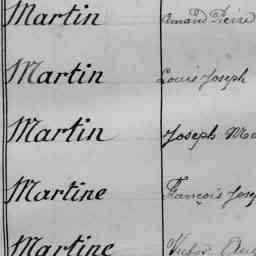 Martin Amand Pierre
Martin Louis Joseph
Martin Joseph
Martine François Jose
Martine Victor Aug